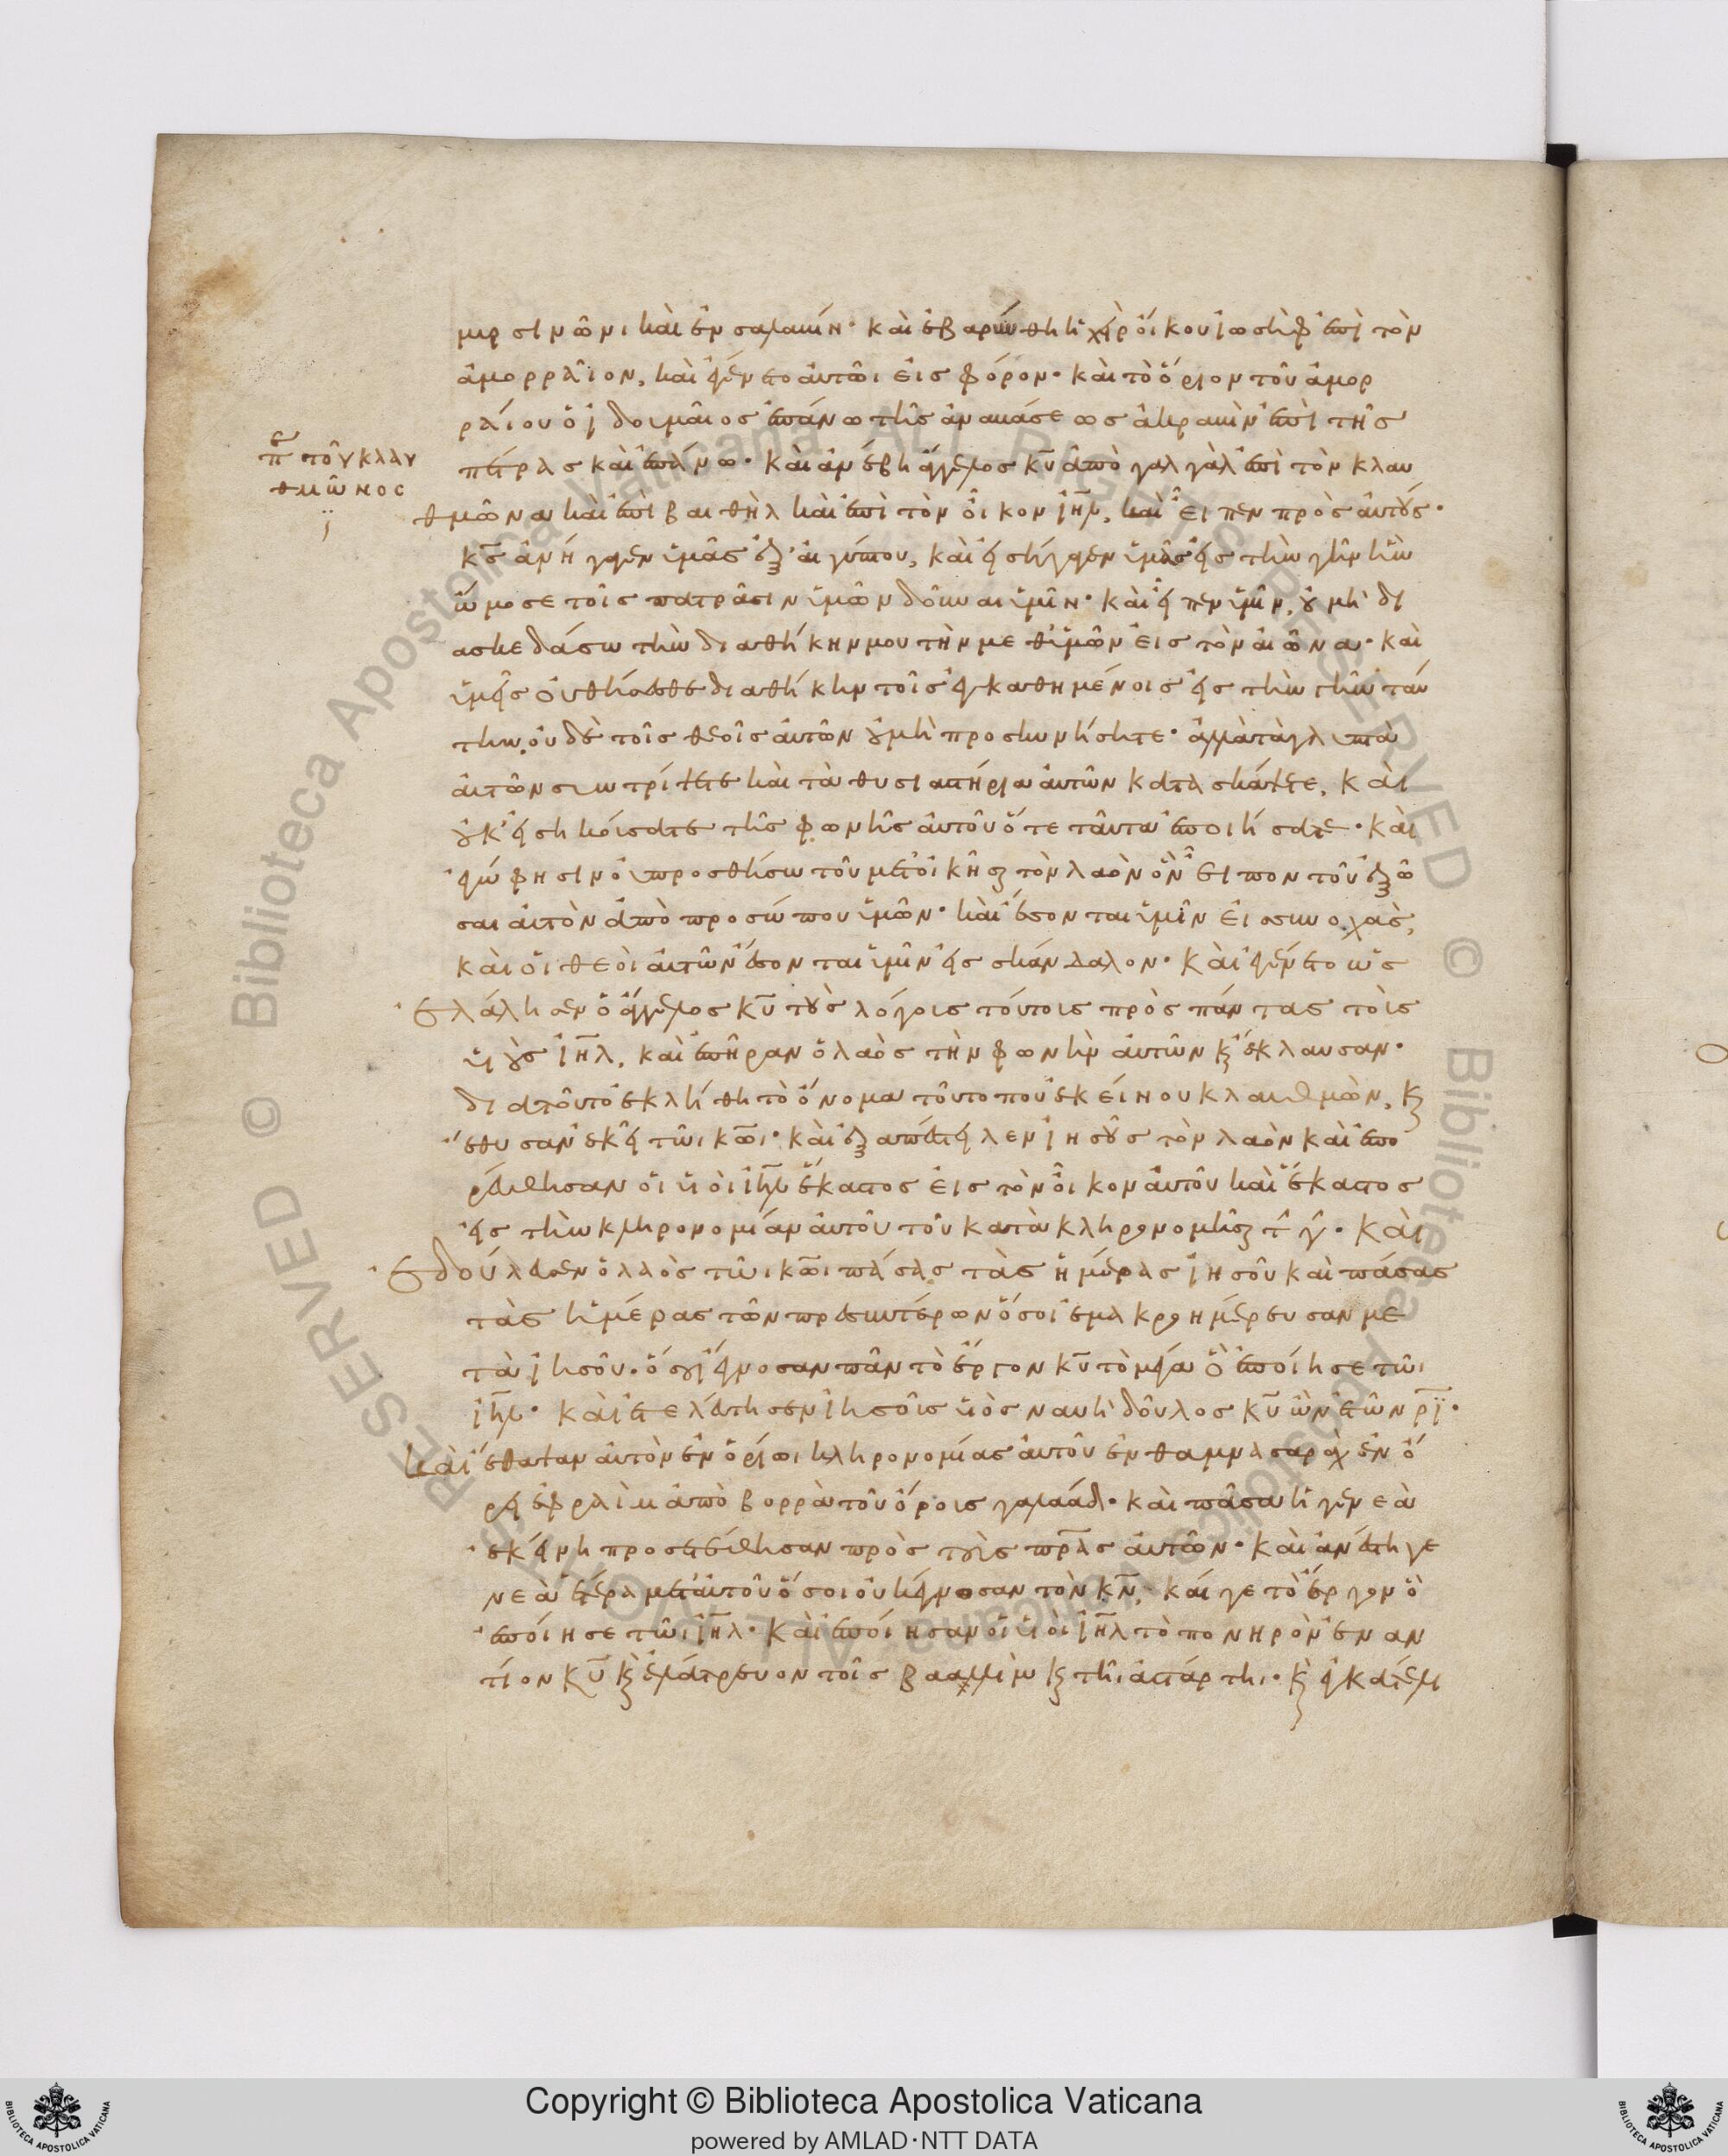 μυρσινῶνι καὶ ἐν σαλαμίν· καὶ ἐβαρύνθη ἡ χεὶρ ὄικου ἰωσὴφ ἐπὶ τὸν
ἀμορραῖον, καὶ ἐγένετο ἀυτῶι ἐις φόρον· καὶ τὸ ὅριον τοῦ ἀμορ
ραίου ὁ ἰδουμαῖος ἐπάνω τῆς ἀναβάσεως ἀκραβὶν ἐπὶ τῆς
πέτρας καὶ ἐπάνω· καὶ ἀνέβη ἄγγελος κ̅υ̅ ἀπὸ γαλγὰλ ἐπὶ τὸν κλαυ
π̅ε̅ τοῦ κλαυ
θμῶνος
ϊ
θμῶνα καὶ ἐπὶ βαιθὴλ καὶ ἐπὶ τὸν ὄικον ἰ̅η̅λ̅, καὶ εἶπεν πρὸς ἀυτούς·
κ̅ς̅ ἀνήγαγεν ὑμᾶς ἐξ αἰγύπτου, καὶ εἰσήγαγεν ὑμᾶς εἰς τὴν γῆν ἣν
ὤμοσε τοῖς πατράσιν ὑμῶν δοῦναι ὑμῖν· καὶ εἶπεν ὑμῖν, οὐ μὴ δι
ασκεδάσω τὴν διαθήκην μου τὴν μεθ' ὑμῶν εἰς τὸν αἰῶνα· καὶ
ὑμεῖς οὐ θήσεσθε διαθήκην τοῖς ἐγκαθημένοις εἰς τὴν γῆν ταύ
την, οὐδὲ τοῖς θεοῖς ἀυτῶν οὐ μὴ προσκυνήσητε· ἀλλὰ τὰ γλυπτὰ
ἀυτῶν συντρίψετε καὶ τὰ θυσιαστήρια ἀυτῶν κατασκάψετε, καὶ
οὐκ εἰσηκούσατε τῆς φωνῆς ἀυτοῦ ὅτε ταῦτα ἐποιήσατε· καὶ
ἐγώ φησιν οὐ προσθήσω τοῦ μετοικῆσαι τὸν λαὸν ὃν εἶπον τοῦ ἐξῶ
σαι ἀυτὸν ἀπὸ προσώπου ὑμῶν· καὶ ἔσονται ὑμῖν εἰς συνοχάς,
καὶ οἱ θεοὶ ἀυτῶν ἔσονται ὑμῖν εἰς σκάνδαλον· καὶ ἐγένετο ὡς
ἐλάλησεν ὁ ἄγγελος κ̅υ̅ τοὺς λόγους τούτους πρὸς πάντας τοὺς
υἱοὺς ἰ̅η̅λ̅, καὶ ἐπῆραν ὁ λαὸς τὴν φωνὴν ἀυτῶν κ̀ ἔκλαυσαν·
διατοῦτο ἐκλήθη τὸ ὄνομα τοῦ τόπου ἐκείνου κλαυθμὼν, κ̀
ἔθυσαν ἐκεῖ τῶι κ̅ω̅ι· καὶ ἐξαπέστειλεν ἰησοῦς τὸν λαὸν καὶ ἐπο
ρεύθησαν οἱ υἱοὶ ἰ̅η̅λ̅ ἕκαστος εἰς τὸν οἶκον ἀυτοῦ καὶ ἕκαστος
εἰς τὴν κληρονομίαν ἀυτοῦ τοῦ κατακληρονομῆσαι τ̂ γ̂· καὶ
ἐδούλευσεν ὁ λαὸς τῶι κ̅ω̅ι πάσας τὰς ἡμέρας ἰησοῦ καὶ πάσας
τὰς ἡμέρας τῶν πρεσβυτέρων ὅσοι ἐμακροημέρευσαν με
τὰ ἰησοῦ· ὅσοι ἔγνωσαν πᾶν τὸ ἔργον κ̅υ̅ τὸ μέγα ὃ ἐποίησε τῶι
ἰ̅η̅λ̅· καὶ ἐτελεύτησεν ἰησοῦς υἱὸς ναυῆ δοῦλος κ̅υ̅ ὢν ἐτῶν ρ̅ι̅·
καὶ ἔθαψαν ἀυτὸν ἐν ὁρίωι κληρονομίας ἀυτοῦ ἐν θαμνασαρὰχ ἐν ὄ
ρει ἐφραὶμ ἀπὸ βορρᾶ τοῦ ὄρους γαλαάδ· καὶ πᾶσα ἡ γενεὰ
ἐκείνη προσετέθησαν πρὸς τοὺς π̅ρ̅ας ἀυτῶν· καὶ ἀνέστη γε
νεὰ ἑτέρα μετ' ἀυτοῦ ὅσοι οὐκ ἔγνωσαν τὸν κ̅ν̅, καί γε τὸ ἔργον ὃ
ἐποίησε τῶι ἰ̅η̅λ̅· καὶ ἐποίησαν οἱ υἱοὶ ἰ̅η̅λ̅ τὸ πονηρὸν ἐναν
τίον κ̅υ̅ κ̀ ἐλάτρευον τοῖς βααλεὶμ κ̀ τῆι ἀστάρτηι· κ̀ ἐγκατέλι
Copyright © Biblioteca Apostolica Vaticana
powered by AMLAD·NTT DATA